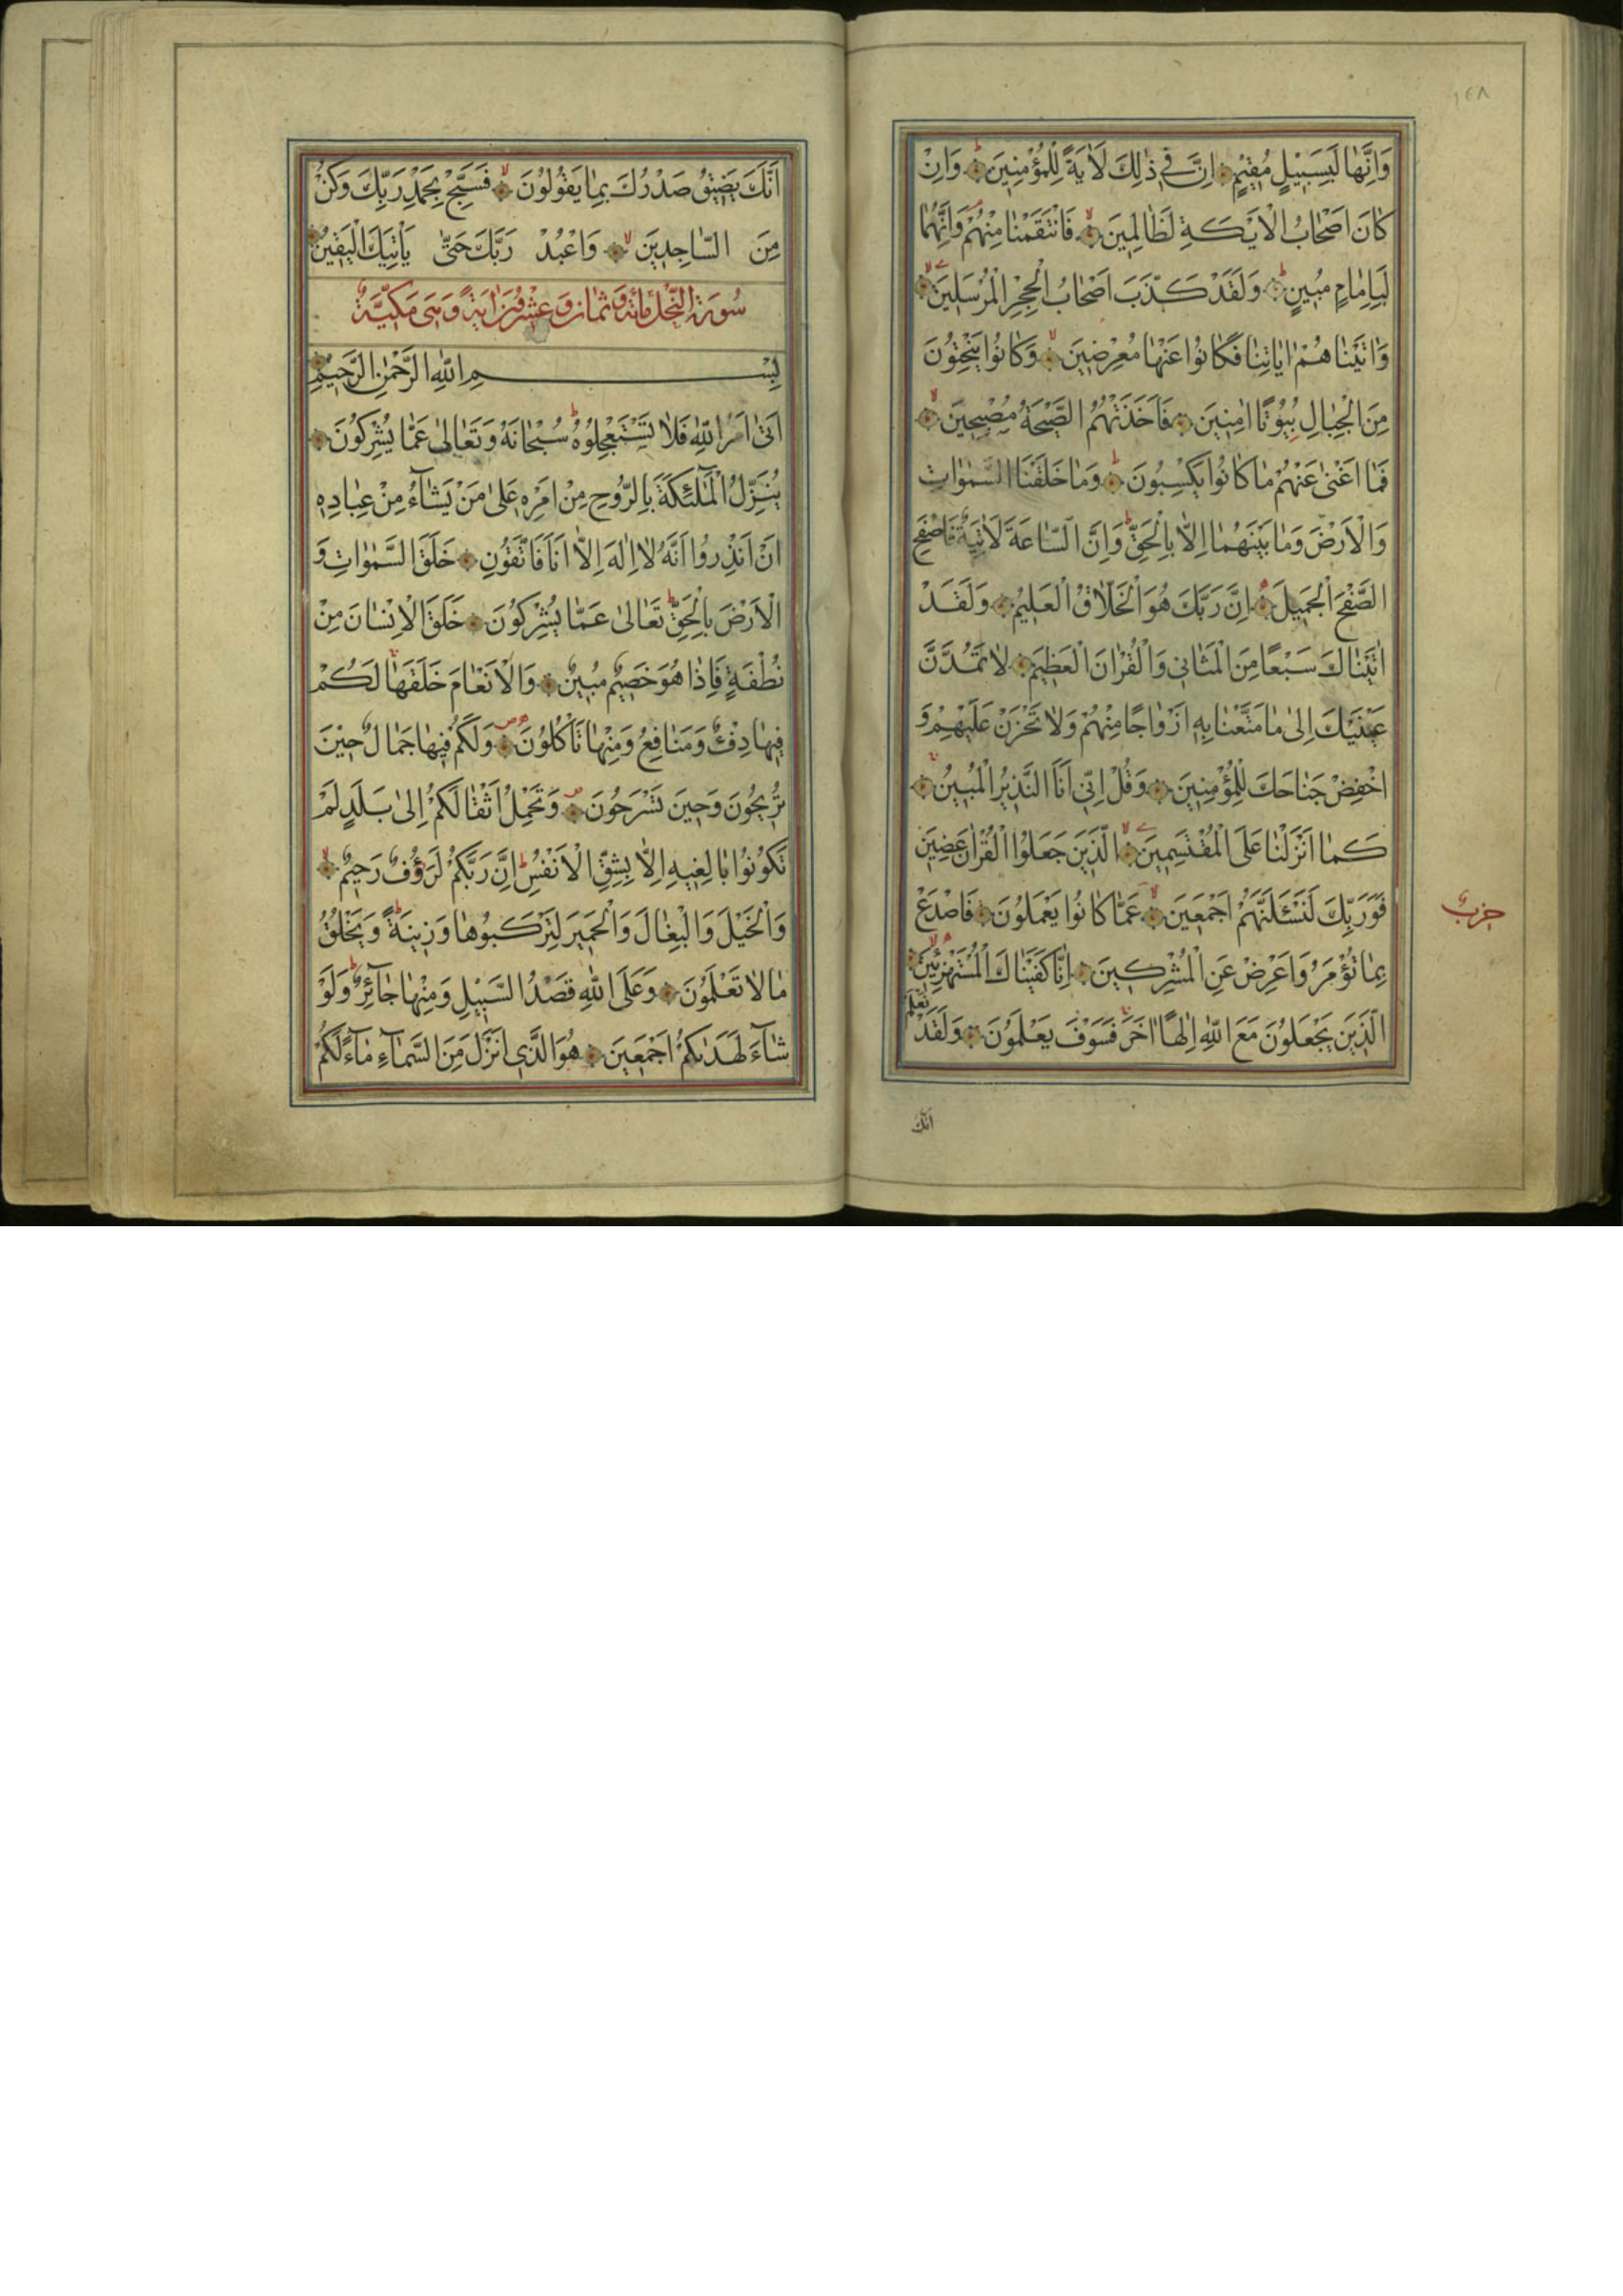 ١٤٨
وَاِنَّهَا لَبِسَبِيْلٍ مُقِيْمٍ اِنَّ فِي ذٰلِكَ لَاٰيَةً لِلْمُؤْمِنِيْنَ وَاِنْ
كَانَ اَصْحَابُ الْاَيْكَةِ لَظَالِمِيْنَ فَانْتَقَمْنَا مِنْهُمْ وَاِنَّهُمَا
لَبِاِمَامٍ مُبِيْنٍ وَلَقَدْ كَذَّبَ اَصْحَابُ الْحِجْرِ الْمُرْسَلِيْنَ
وَاٰتَيْنَاهُمْ اٰيَاتِنَا فَكَانُوا عَنْهَا مُعْرِضِيْنَ وَكَانُوا يَنْحِتُوْنَ
مِنَ الْجِبَالِ بُيُوْتًا اٰمِنِيْنَ فَاَخَذَتْهُمُ الصَّيْحَةُ مُصْبِحِيْنَ
فَمَا اَغْنٰى عَنْهُمْ مَا كَانُوا يَكْسِبُوْنَ وَمَا خَلَقْنَا السَّمٰوَاتِ
وَالْاَرْضَ وَمَا بَيْنَهُمَا اِلَّا بِالْحَقِّ وَاِنَّ السَّاعَةَ لَاٰتِيَةٌ فَاصْفَحِ
الصَّفْحَ الْجَمِيْلَ اِنَّ رَبَّكَ هُوَ الْخَلَّاقُ الْعَلِيْمُ وَلَقَدْ
اٰتَيْنَاكَ سَبْعًا مِنَ الْمَثَانِي وَالْقُرْاٰنَ الْعَظِيْمَ لَا تَمُدَّنَّ
عَيْنَيْكَ اِلٰى مَا مَتَّعْنَا بِهٖ اَزْوَاجًا مِنْهُمْ وَلَا تَحْزَنْ عَلَيْهِمْ وَ
اخْفِضْ جَنَاحَكَ لِلْمُؤْمِنِيْنَ وَقُلْ اِنِّي اَنَا النَّذِيْرُ الْمُبِيْنُ
كَمَا اَنْزَلْنَا عَلَى الْمُقْتَسِمِيْنَ الَّذِيْنَ جَعَلُوا الْقُرْاٰنَ عِضِيْنَ
فَوَرَبِّكَ لَنَسْئَلَنَّهُمْ اَجْمَعِيْنَ عَمَّا كَانُوا يَعْمَلُوْنَ فَاصْدَعْ
حزب
بِمَا تُؤْمَرُ وَاَعْرِضْ عَنِ الْمُشْرِكِيْنَ اِنَّا كَفَيْنَاكَ الْمُسْتَهْزِئِيْنَ
الَّذِيْنَ يَجْعَلُوْنَ مَعَ اللّٰهِ اِلٰهًا اٰخَرَ فَسَوْفَ يَعْلَمُوْنَ وَلَقَدْ نَعْلَمُ
اَنَّكَ
اَنَّكَ يَضِيْقُ صَدْرُكَ بِمَا يَقُوْلُوْنَ فَسَبِّحْ بِحَمْدِ رَبِّكَ وَكُنْ
مِنَ السَّاجِدِيْنَ وَاعْبُدْ رَبَّكَ حَتّٰى يَاْتِيَكَ الْيَقِيْنُ
سُوْرَةُ النَّحْلِ مِائَةٌ وَثَمَانٍ وَعِشْرُوْنَ اٰيَةً وَهِيَ مَكِّيَّةٌ
بِسْمِ اللّٰهِ الرَّحْمٰنِ الرَّحِيْمِ
اَتٰى اَمْرُ اللّٰهِ فَلَا تَسْتَعْجِلُوْهُ سُبْحَانَهُ وَتَعَالٰى عَمَّا يُشْرِكُوْنَ
يُنَزِّلُ الْمَلٰٓئِكَةَ بِالرُّوْحِ مِنْ اَمْرِهٖ عَلٰى مَنْ يَشَآءُ مِنْ عِبَادِهٖ
اَنْ اَنْذِرُوا اَنَّهُ لَا اِلٰهَ اِلَّا اَنَا فَاتَّقُوْنِ خَلَقَ السَّمٰوَاتِ وَ
الْاَرْضَ بِالْحَقِّ تَعَالٰى عَمَّا يُشْرِكُوْنَ خَلَقَ الْاِنْسَانَ مِنْ
نُطْفَةٍ فَاِذَا هُوَ خَصِيْمٌ مُبِيْنٌ وَالْاَنْعَامَ خَلَقَهَا لَكُمْ
فِيْهَا دِفْءٌ وَمَنَافِعُ وَمِنْهَا تَاْكُلُوْنَ وَلَكُمْ فِيْهَا جَمَالٌ حِيْنَ
تُرِيْحُوْنَ وَحِيْنَ تَسْرَحُوْنَ وَتَحْمِلُ اَثْقَالَكُمْ اِلٰى بَلَدٍ لَمْ
تَكُوْنُوا بَالِغِيْهِ اِلَّا بِشِقِّ الْاَنْفُسِ اِنَّ رَبَّكُمْ لَرَؤُفٌ رَحِيْمٌ
وَالْخَيْلَ وَالْبِغَالَ وَالْحَمِيْرَ لِتَرْكَبُوْهَا وَزِيْنَةً وَيَخْلُقُ
مَا لَا تَعْلَمُوْنَ وَعَلَى اللّٰهِ قَصْدُ السَّبِيْلِ وَمِنْهَا جَآئِرٌ وَلَوْ
شَآءَ لَهَدٰىكُمْ اَجْمَعِيْنَ هُوَ الَّذِي اَنْزَلَ مِنَ السَّمَآءِ مَآءً لَكُمْ